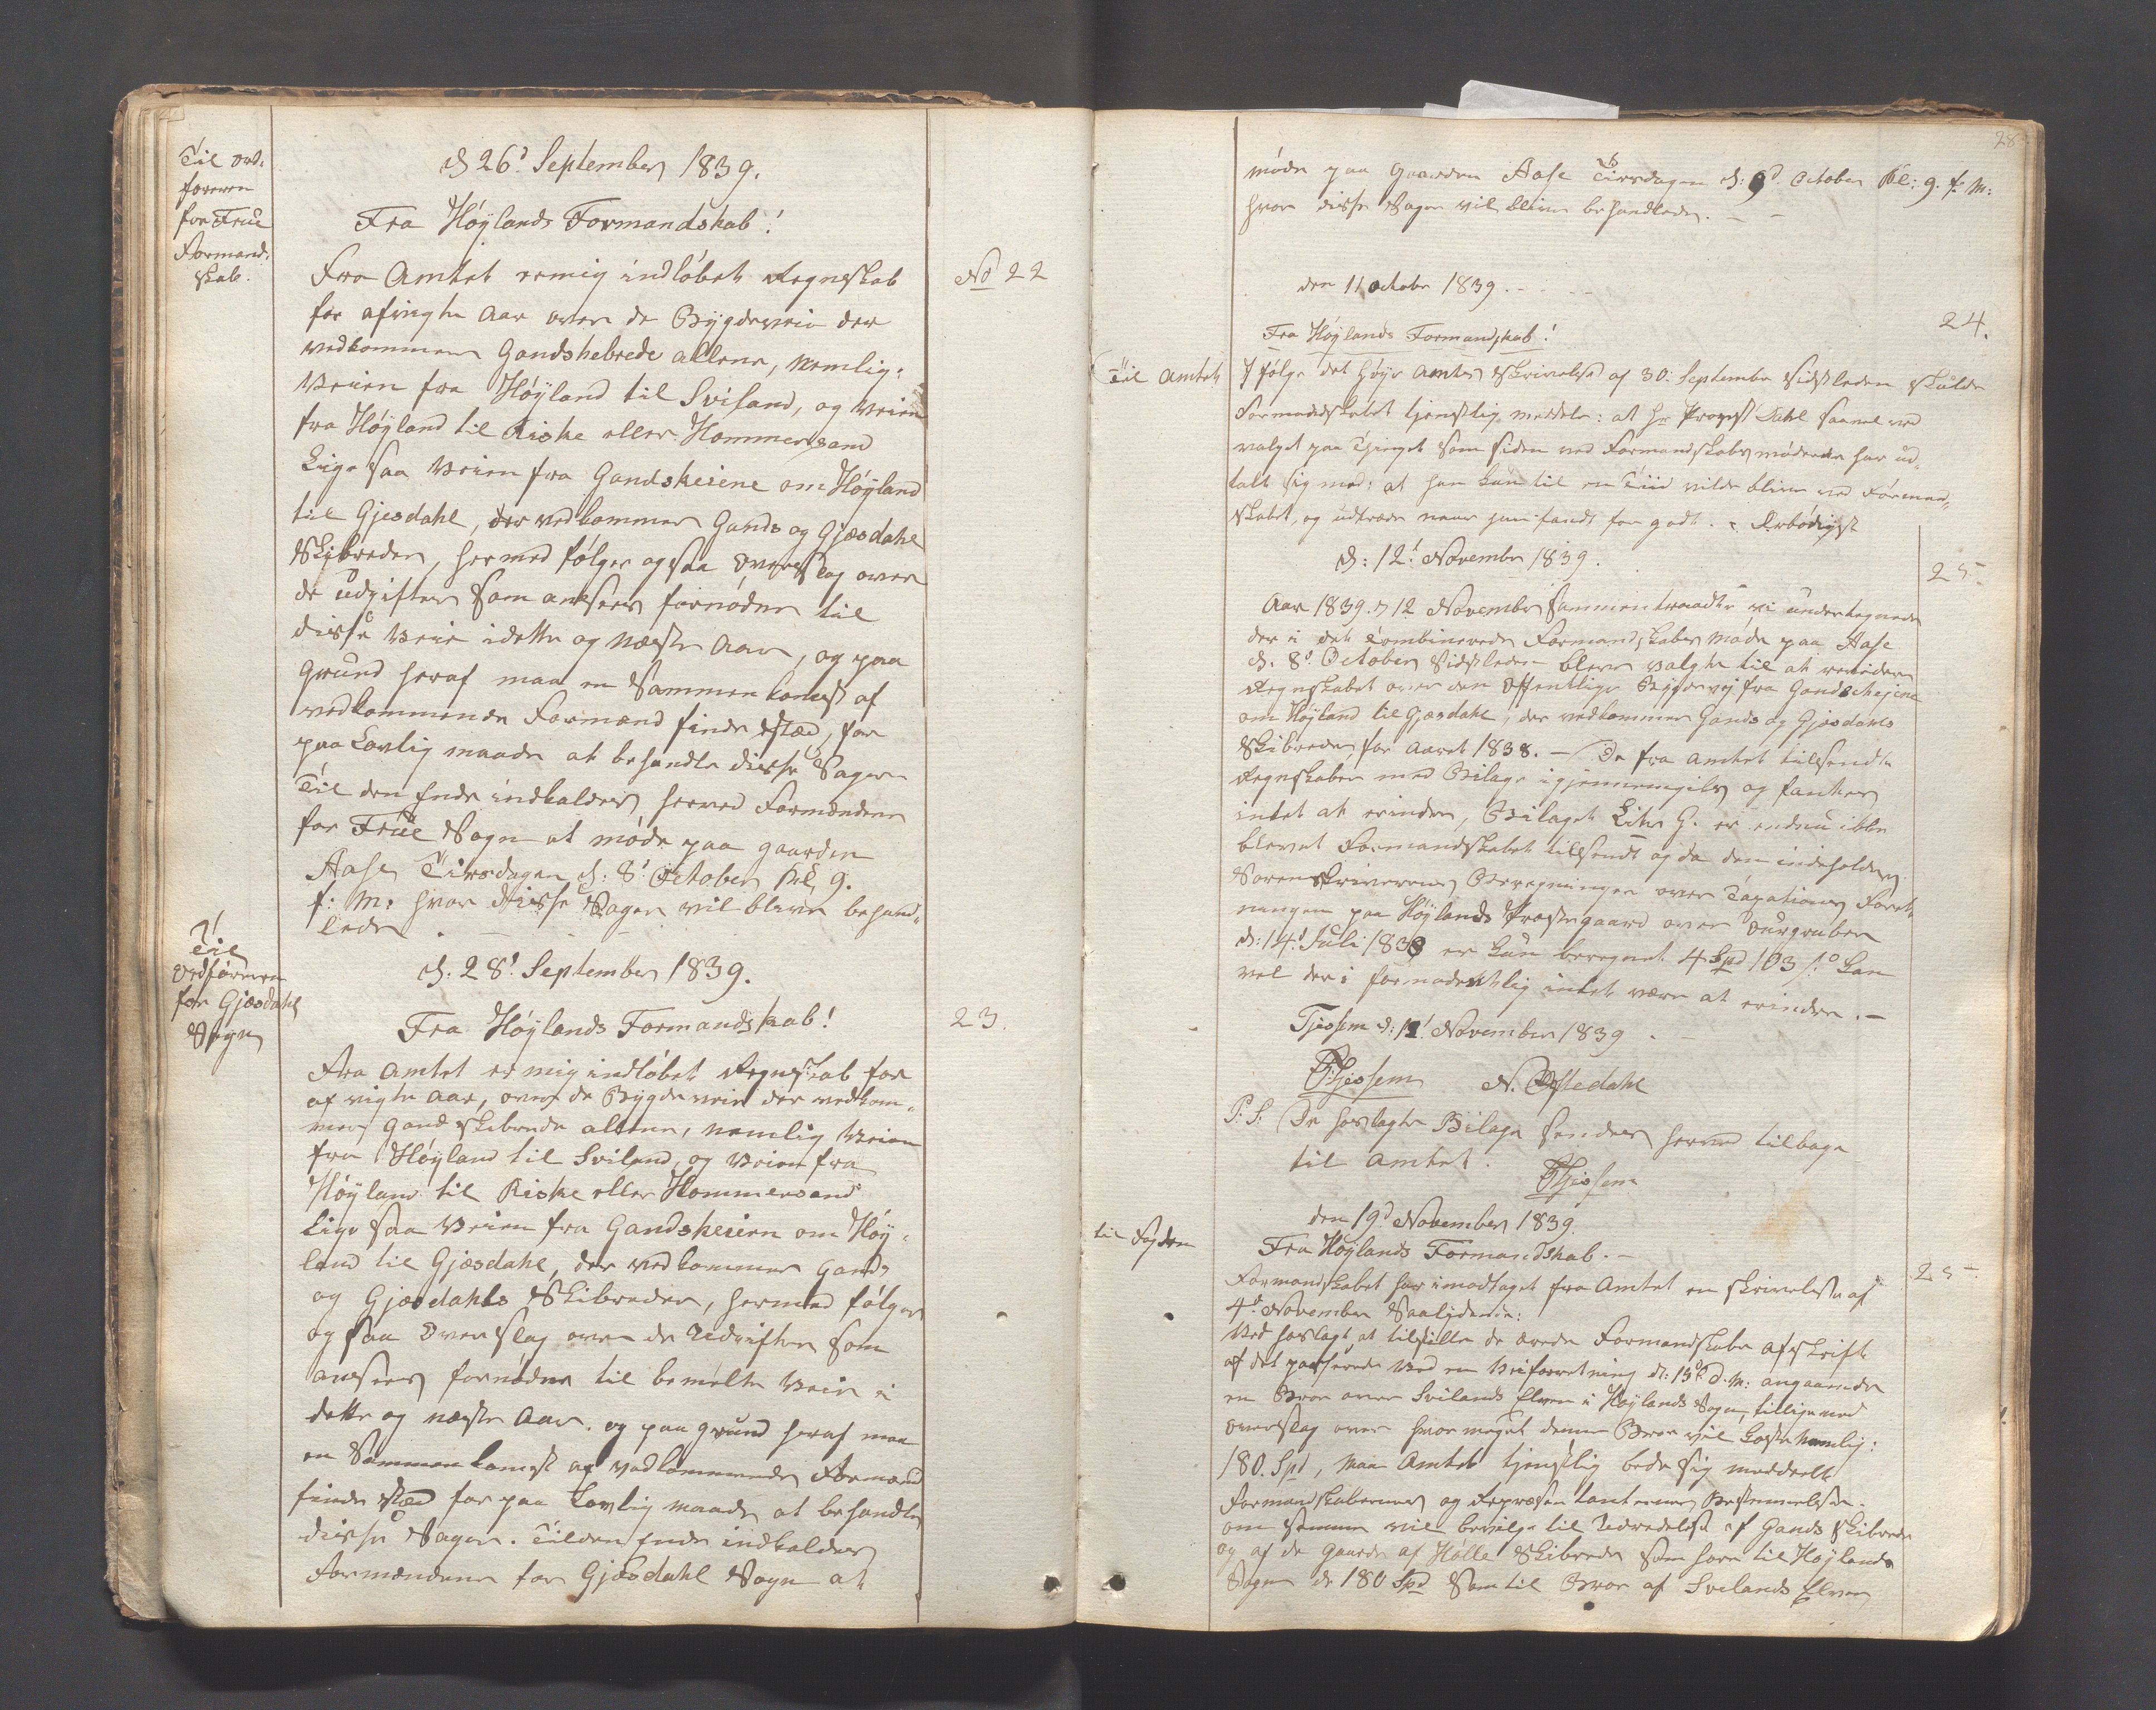 Til ord-
føreren
for Frue
Formand-
skab.
d 26d September 1839.
Fra Høylands Formandskab!
No 22
Fra Amtet er mig indløbet Regnskab
for afvigte Aar over de Bygdeveie der
vedkommer Gandskebrede allene, nemlig:
Veien fra Høyland til Sviland, og Veien
fra Høyland til Riske eller Hommersand
Lige saa Veien fra Gandskeiene om Høyland
til Gjesdahl, der vedkommer Gands og Gjæsdahl
Skibreder, hermed følger ogsaa Overslag over
de Udgifter som ansees fornøden til
disse Veie i dette og næste Aar, og paa
Grund heraf maa en Sammenkomst af
vedkommende Formænd finde Sted, for
paa Lovlig maade at behandle disse Sager
Til den Ende indkaldes herved Formændene
for Frue Sogn at møde paa Gaarden
Aase Tirsdagen d: 8d October Kl. 9.
f: M: hvor disse Sager vil blive behand-
lede.
Til
Ordføreren
for Gjæsdahl
Sogn
d. 28d September 1839.
Fra Høylands Formandskab!
23.
Fra Amtet er mig indløbet Regnskab for
afvigte Aar, over de Bygdeveie der vedkom-
mer Gandskibrede allene, nemlig Veien
fra Høyland til Sviland, og Veien fra
Høyland til Riske eller Hommersand
Lige saa Veien fra Gandskeien om Høy-
land til Gjæsdahl, der vedkommer Gands
og Gjæsdahls Skibreder, hermed følger
og saa Overslag over de Udgifter som
ansees fornøden til bemelte Veie i
dette og næste Aar. og paa Grund heraf maa
en Sammenkomst af vedkommende Formænd
finde sted for paa Lovlig maade at behandle
disse Sager. Til den Ende indkaldes
Formændene for Gjæsdahl Sogn at
28
møde paa Gaarden Aase Tirsdagen d: 8d October Kl: 9. f: M:
hvor disse Sager vil blive behandlede.
den 11 Octobr 1839.
Fra Høylands Formandskab!
24.
Til Amtet
I følge det høye Amtes Skrivelse af 30. September Sidstleden skulde
Formandskabet tjenstlig meddele: at Hr Provst Dahl saavel ved
valget paa Thinget som siden ved Formandskabsmøderne har ud-
talt sig med: at han kun til en Tiid vilde blive ved Formand-
skabet, og udtræde naar han fandt for godt. Ærbødigst
d: 12t November 1839.
25.
Aar 1839. d 12 November Sammentraadte vi undertegnede
der i det Combinerede Formandskabs møde paa Aase
d. 8d October Sidstleden blev valgte til at revidere
Regnskabet over den Offentlige Bygdevej fra Gandskejene
om Høyland til Gjæsdahl, der vedkommer Gands og Gjæsdahls
Skibreder for Aaret 1838. - De fra Amtet tilsendte
Regnskaber med Bilage igjennemgikes og fantes
intet at erindre, Bilaget Litr G. er endnu ikke
blevet Formandskabet tilsendt og da den indeholder
Sorenskriverens Beregninger over Taxations Forret-
ningen paa Høylands Præstegaard over Uurgruben
d: 14d Juli 1838 er kun beregnet 4 Spd 103 s. kan
vel der i formodentlig intet være at erindre. -
Tjessem d: 12t November 1839.
Tjessem N. Østedahl
P: S: De hoslagte Bilage sendes herved tilbage
til Amtet.
Tjessem
den 19d November 1839.
til Fogden
Fra Høylands Formandskab. -
25.
Formandskabet har imodtaget fra Amtet en skrivelse af
4d November Saalydende:
Ved hoslagt at tilstille de ærede Formandskaber afskrift
af det passerede ved en Veiforretning d: 15d d. M: angaaende
en Broe over Svilands Elven i Høylands Sogn, tilligemed
overslag over hvor meget denne Broe vil koste nemlig:
180. Spd, maa Amtet tjenstlig bede sig meddeelt
Formandskabernes og Repræsentanternes Bestemmelse
om Samme vil bevilge til Udredelse af Gands Skibrede
og af de Gaarde af Hølle Skibrede som høre til Høylands
Sogn de 180 Spd Som til Broe af Svilands Elven